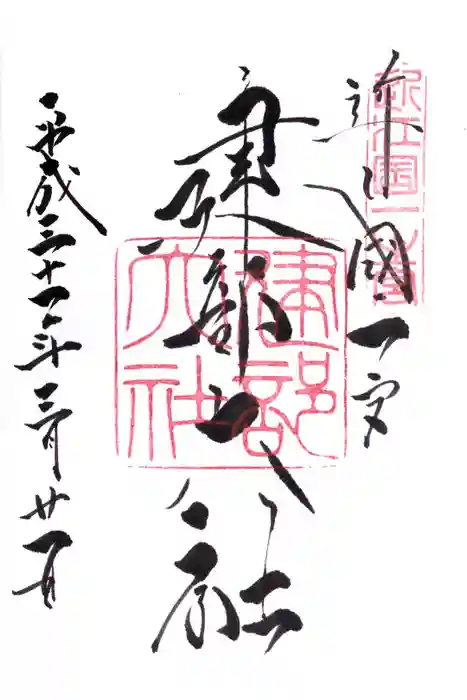 近江國一宮
近江國一之宮
建部大社
建部大社
平成三十一年三月廿一日